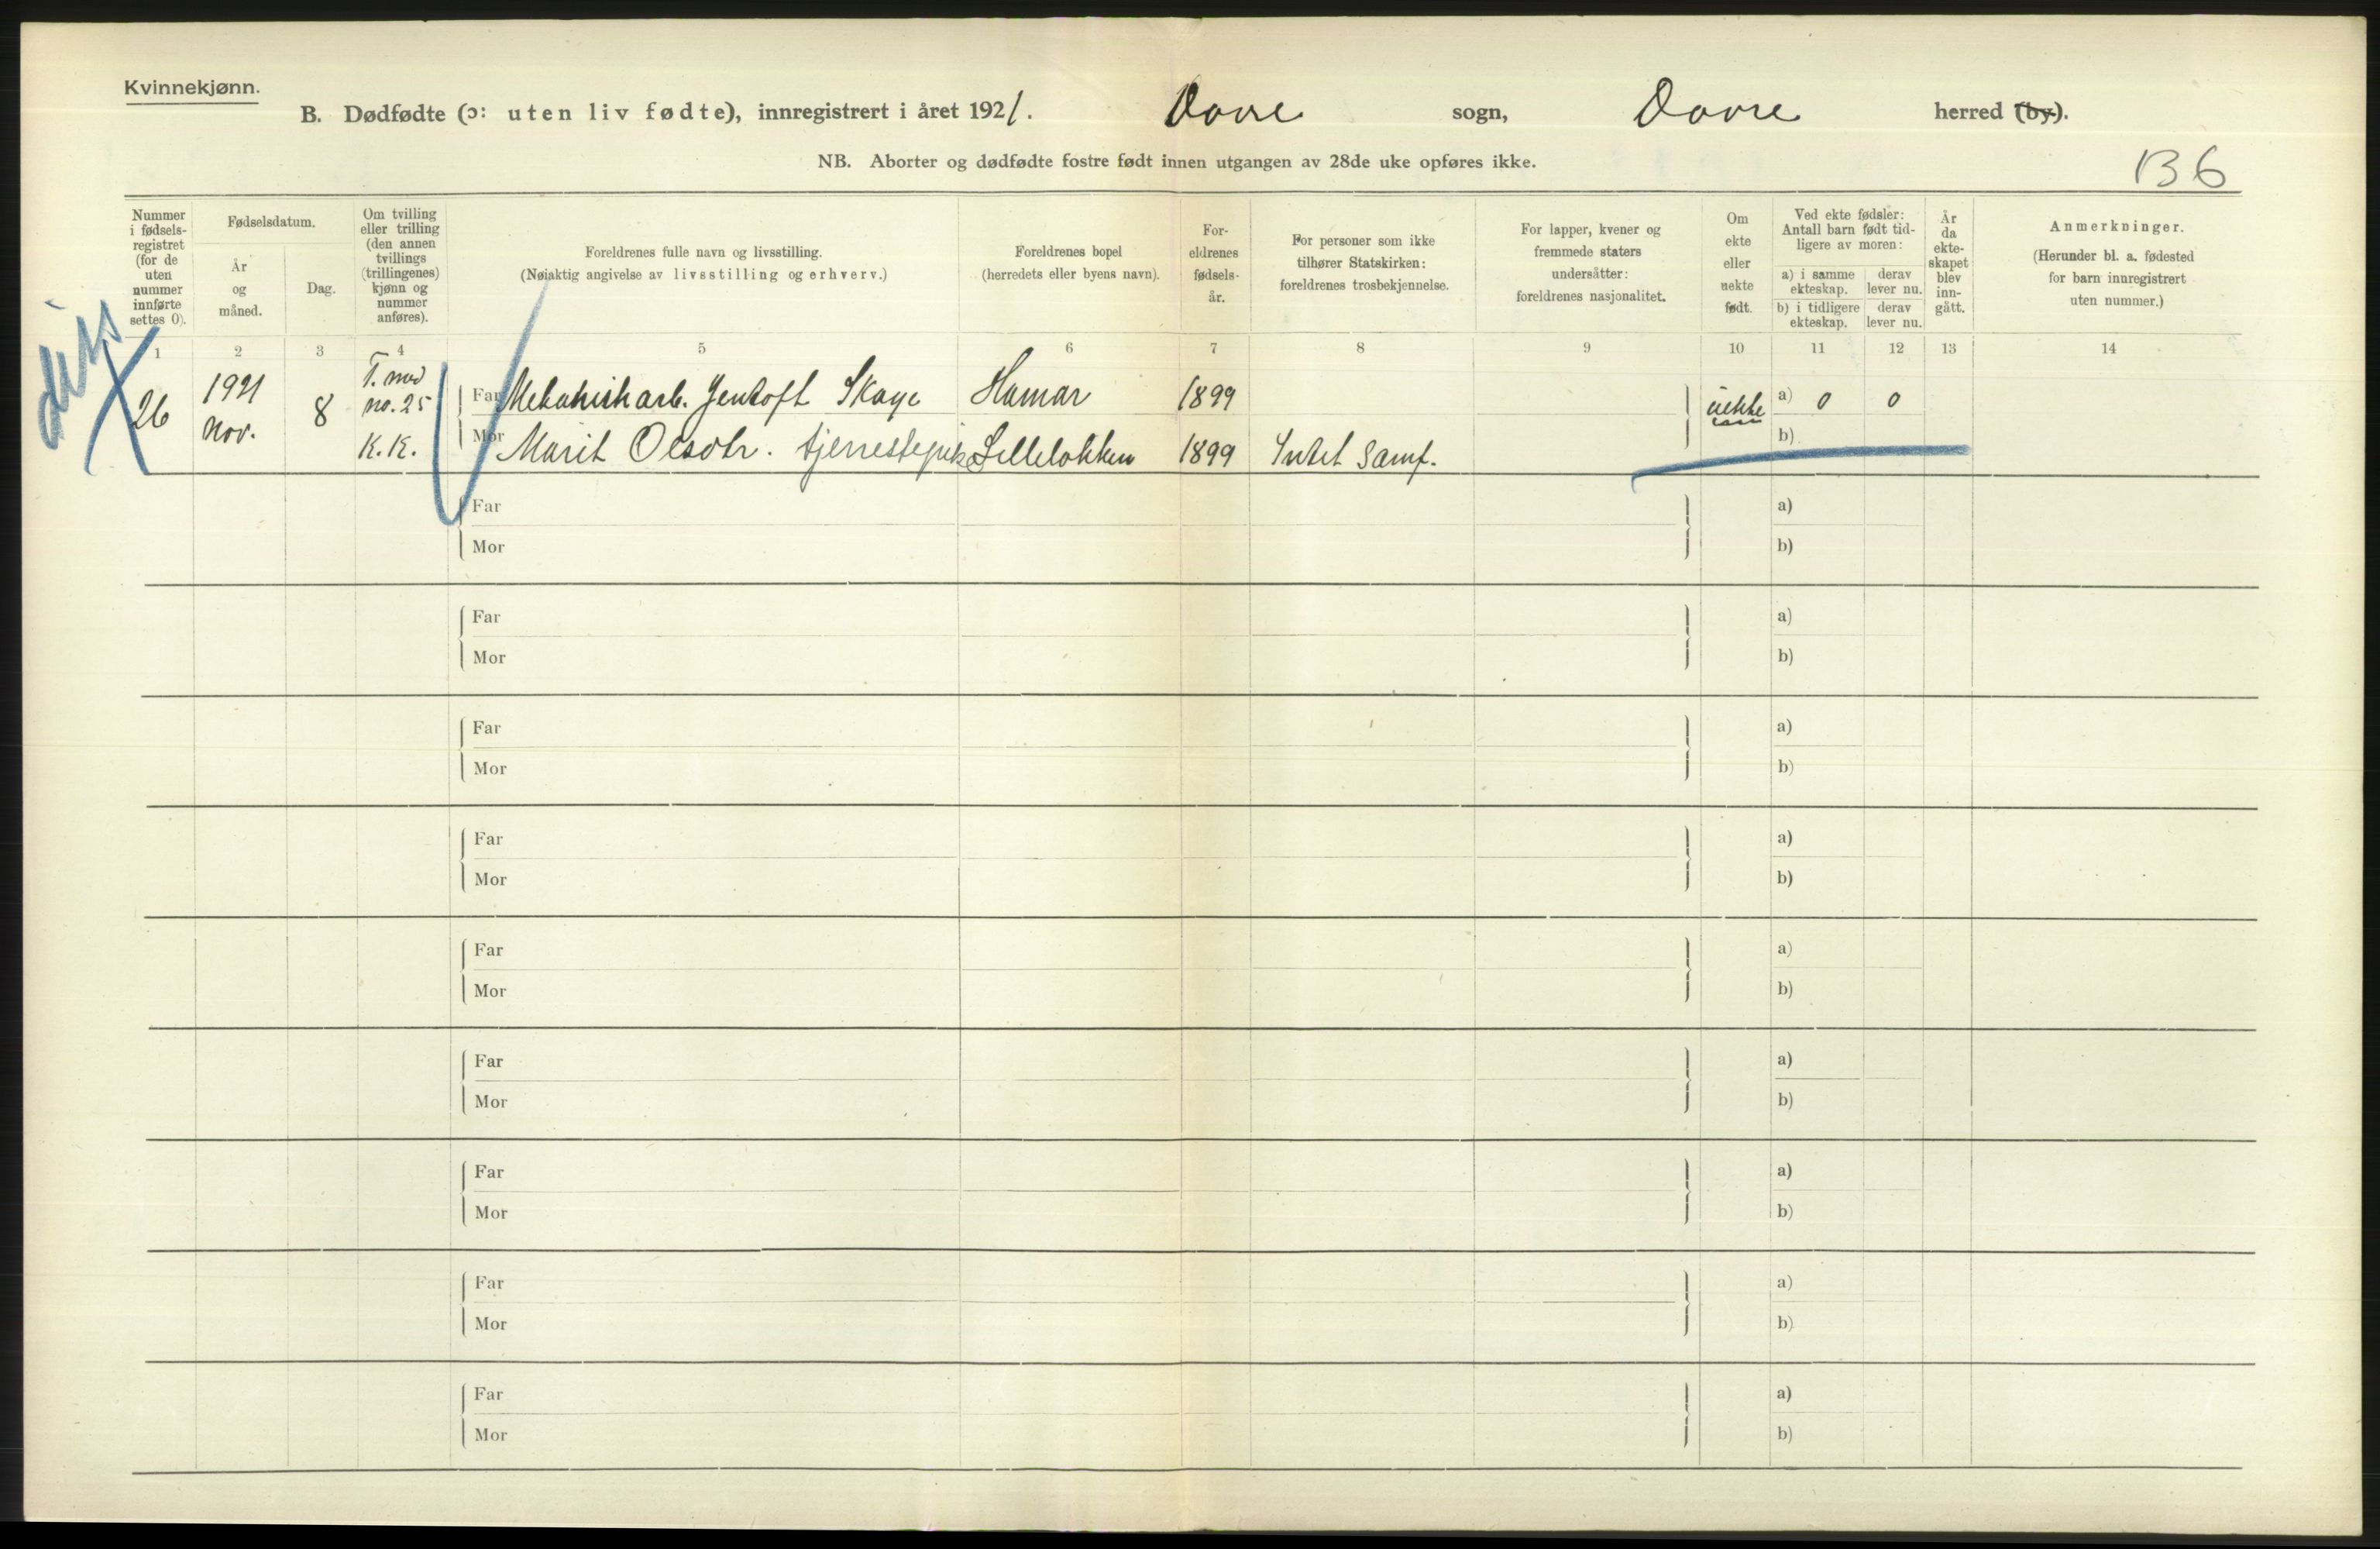 Kvinnekjønn.
B. Dødfødte (ɔ: uten liv fødte), innregistrert i året 1921. Dovre sogn, Dovre herred (by).
NB. Aborter og dødfødte fostre født innen utgangen av 28de uke opføres ikke.
136
Nummer i fødsels-registret (for de uten nummer innførte settes 0).
Fødselsdatum.
År og måned.
Dag.
Om tvilling eller trilling (den annen tvillings (trillingenes) kjønn og nummer anføres).
Foreldrenes fulle navn og livsstilling.
(Nøiaktig angivelse av livsstilling og erhverv.)
Foreldrenes bopel
(herredets eller byens navn).
For-eldrenes fødsels-år.
For personer som ikke tilhører Statskirken: foreldrenes trosbekjennelse.
For lapper, kvener og fremmede staters undersåtter: foreldrenes nasjonalitet.
Om ekte eller uekte født.
Ved ekte fødsler: Antall barn født tid-ligere av moren:
a) i samme ekteskap.
derav lever nu.
b) i tidligere ekteskap.
derav lever nu.
År da ekte-skapet blev inn-gått.
Anmerkninger.
(Herunder bl. a. fødested for barn innregistrert uten nummer.)
1 2 3 4 5 6 7 8 9 10 11 12 13 14
26 1921 nov. 8 T. med no. 25 K.K.
Far Mekanisk arb. Jentoft Skaye Hamar 1899 uekte a) 0 0
Mor Marit Olsdtr. tjenestepike Lilleløkken 1899 Intet samf. b)
Far a)
Mor b)
Far a)
Mor b)
Far a)
Mor b)
Far a)
Mor b)
Far a)
Mor b)
Far a)
Mor b)
Far a)
Mor b)
Far a)
Mor b)
Far a)
Mor b)